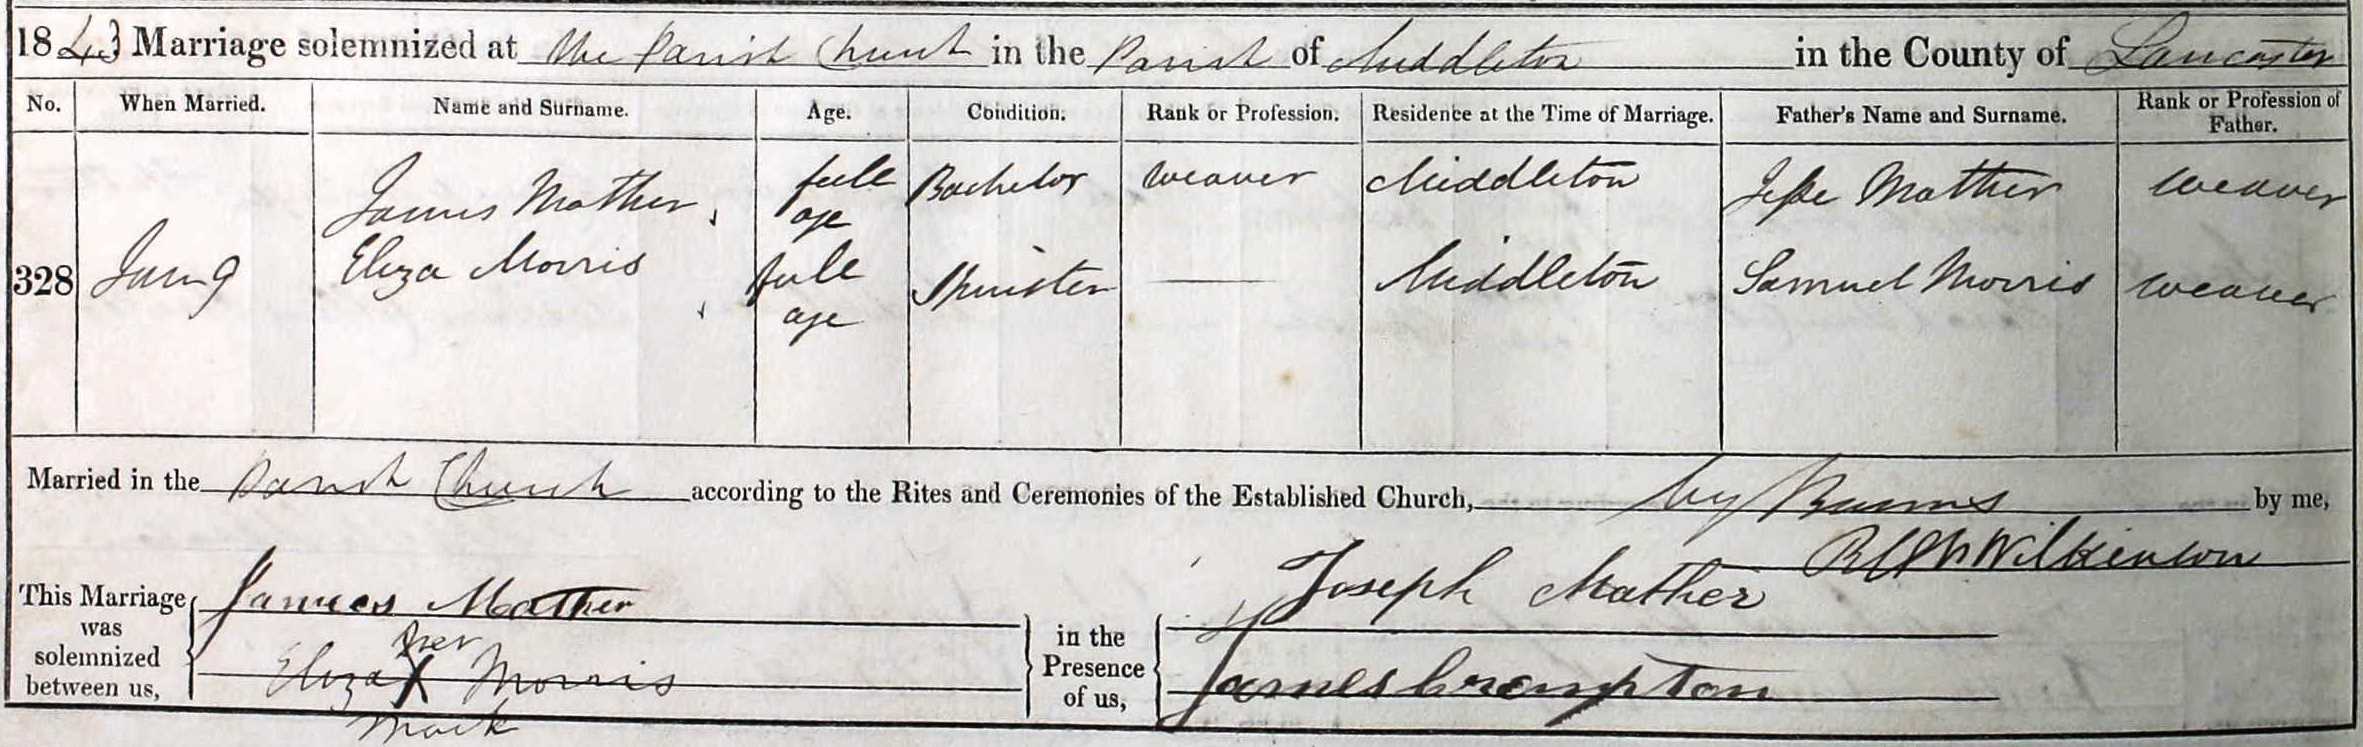 1843 Marriage solemnized at the Parish Church in the Parish of Middleton in the County of Lancaster
No. When Married. Name and Surname. Age. Condition. Rank or Profession. Residence at the Time of Marriage. Father's Name and Surname. Rank or Profession of Father.
James Mather full age Bachelor weaver Middleton Jesse Mather weaver
328 Jan 9 Eliza Morris full age Spinster — Middleton Samuel Morris weaver
Married in the Parish Church according to the Rites and Ceremonies of the Established Church, by Banns by me,
Wilkinson
This Marriage was solemnized between us, James Mather in the Presence of us, Joseph Mather
Eliza her X Morris James Crompton
mark